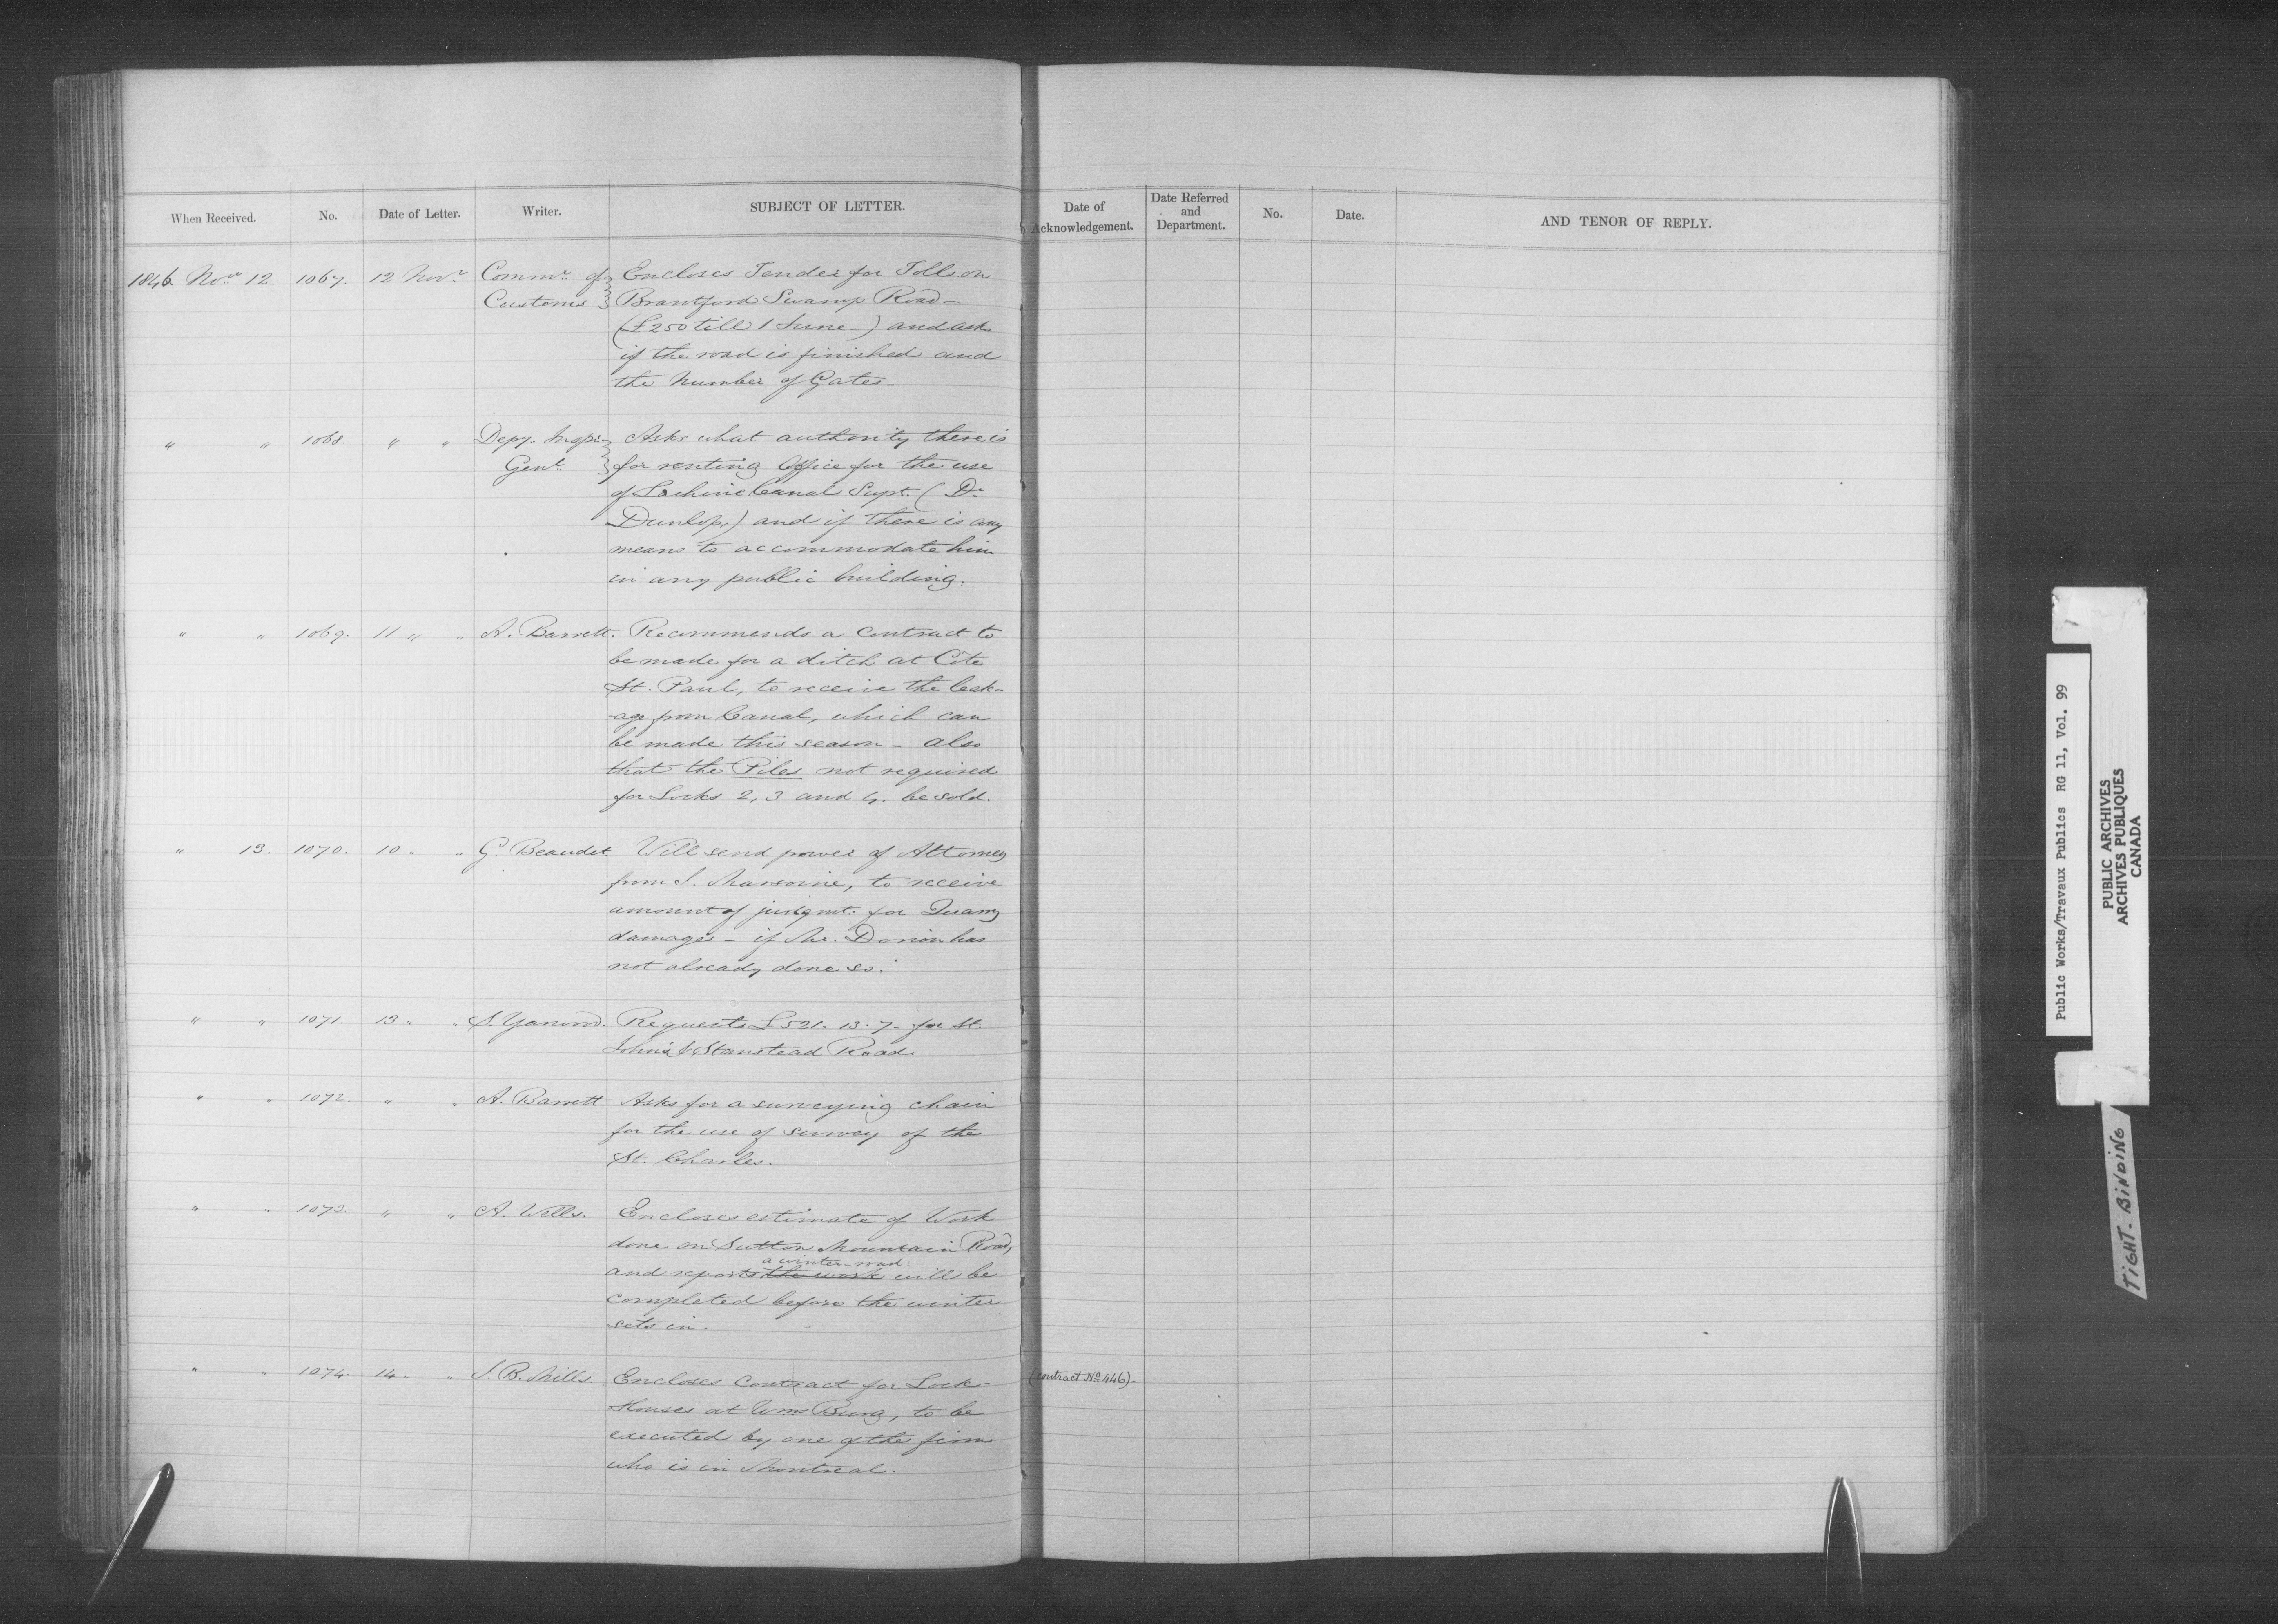 When Received. No. Date of Letter. Writer. SUBJECT OF LETTER.
Date of Acknowledgement. Date Referred and Department. No. Date. AND TENOR OF REPLY.
1846. Novr. 12. 1067. 12 Novr. Commr. of Customs } Encloses Tender for Toll on
Brantford Swamp Road -
(£250 till 1 June -) and asks
if the road is finished and
the Number of Gates -
" " 1068. " " Depy. Inspr. Genl. } Asks what authority there is
for renting Office for the use
of Lachine Canal Supt. ( Dr.
Dunlop,) and if there is any
means to accommodate him
in any public building.
" " 1069. 11 " " A. Barrett. Recommends a Contract to
be made for a ditch at Côte
St. Paul, to receive the leak-
-age from Canal, which can
be made this season - also
that the Piles not required
for Locks 2, 3 and 4. be sold.
" 13. 1070. 10 " " G. Beaudet Will send power of Attorney
from to receive
amount of judgmt. for Quarry
damages - if Mr. Dorion has
not already done so.
" " 1071. 13 " " S. Yarwood. Requests £521. 13. 7 - for St.
Johns & Stanstead Road
" " 1072. " " A. Barrett Asks for a surveying chain
for the use of survey of the
St. Charles.
" " 1073. " " A. Wells. Encloses estimate of Work
done on Sutton Mountain Road,
a winter-road
and reports the work will be
completed before the winter
sets in.
" " 1074. 14 - " J. B. Mills. Encloses Contract for Lock- (Contract No. 446) -
Houses at Wms Burg, to be
executed by one of the firm
who is in Montreal.
Public Works/Travaux Publics RG 11, Vol. 99
PUBLIC ARCHIVES
ARCHIVES PUBLIQUES
CANADA
TIGHT. BINDING